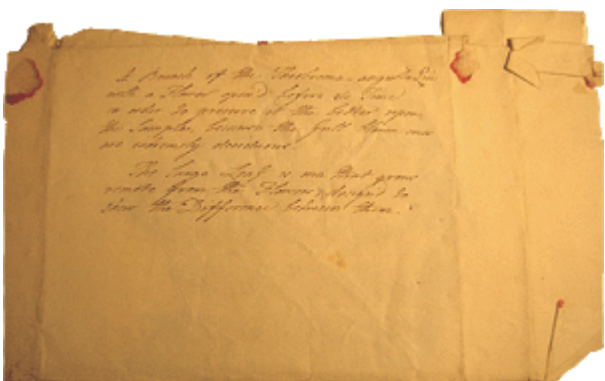 A Branch of the Theobroma angusti
with a Flower open'd before its Time
in order to preserve it the better upon
the Sample, because the full blown ones
are extremely deciduous.
The large Leaf is one that grows
remote from the Flowers, designed to
shew the Difference between them.